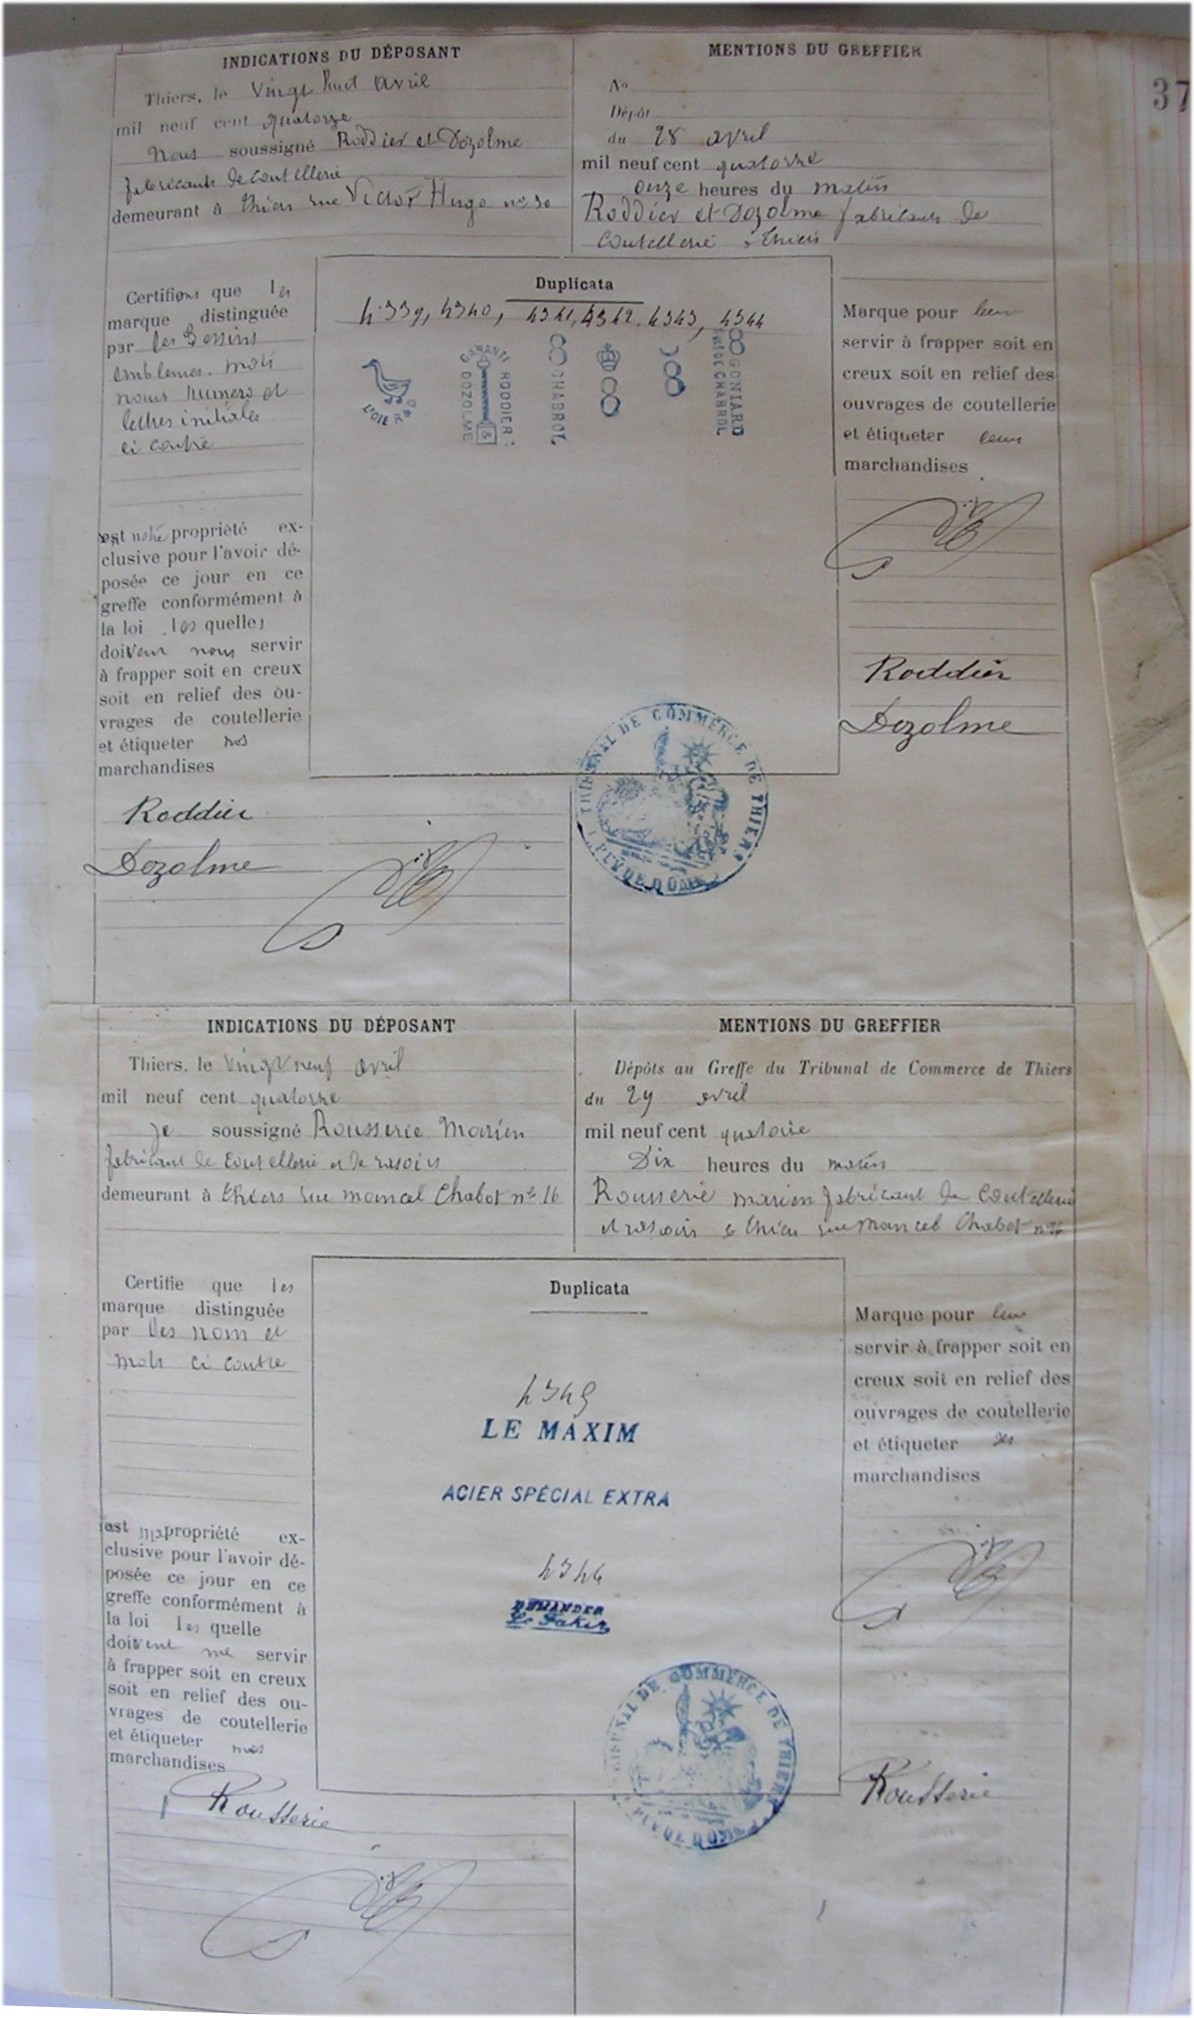 37
INDICATIONS DU DÉPOSANT
Thiers, le Vingt huit avril
mil neuf cent quatorze
Nous soussigné Roddier et Dozolme
fabricants de coutellerie
demeurant à thiers rue Victor Hugo no 30
MENTIONS DU GREFFIER
No
Dépôt
du 28 avril
mil neuf cent quatorze
onze heures du matin
Roddier et Dozolme fabricants de
coutellerie à Thiers
Certifions que les
marque distinguée
par les Dessins
emblemes mots
noms numéro et
lettres initiales
ci contre
est notre propriété ex-
clusive pour l'avoir dé-
posée ce jour en ce
greffe conformément à
la loi les quelles
doivent nous servir
à frapper soit en creux
soit en relief des ou-
vrages de coutellerie
et étiqueter nos
marchandises
Roddier
Dozolme
Duplicata
4339, 4340, 4341, 4342, 4343, 4344
L'OIE R & D
GARANTI RODDIER & DOZOLME
8 CHABROL
8
8
8 GONIARD
CHABROL
TRIBUNAL DE COMMERCE DE THIERS
PUY DE DOME
Marque pour leur
servir à frapper soit en
creux soit en relief des
ouvrages de coutellerie
et étiqueter leurs
marchandises
Roddier
Dozolme
INDICATIONS DU DÉPOSANT
Thiers, le Vingt neuf avril
mil neuf cent quatorze
je soussigné Rousserie Marien
fabricant de coutellerie et de rasoirs
demeurant à thiers rue mancel Chabot no 16
MENTIONS DU GREFFIER
Dépôts au Greffe du Tribunal de Commerce de Thiers
du 29 avril
mil neuf cent quatorze
Dix heures du matin
Rousserie marien fabricant de coutellerie
et rasoirs à thiers rue Mancel Chabot no 16
Certifie que les
marque distinguée
par des nom et
mots ci contre
est ma propriété ex-
clusive pour l'avoir dé-
posée ce jour en ce
greffe conformément à
la loi les quelle
doivent me servir
à frapper soit en creux
soit en relief des ou-
vrages de coutellerie
et étiqueter mes
marchandises
Rousserie
Duplicata
4345
LE MAXIM
ACIER SPÉCIAL EXTRA
4346
DEMANDER
Le Fakir
TRIBUNAL DE COMMERCE DE THIERS
PUY DE DOME
Marque pour leur
servir à frapper soit en
creux soit en relief des
ouvrages de coutellerie
et étiqueter ses
marchandises
Rousserie